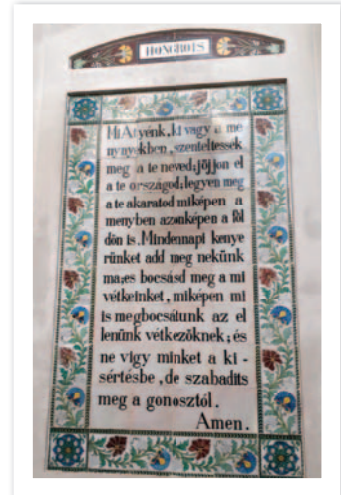 HONGROIS
Mi Atyénk, ki vagy a me
nynyekben, szenteltessék
meg a te neved; jöjjon el
a te országod; legyen meg
a te akaratod miképen a
menyben azonképen a föl
dön is. Mindennapi kenye
rünket add meg nekünk
ma; es bocsásd meg a mi
vétkeinket, miképen mi
is megbocsátunk az el
lenünk vétkezőknek; és
ne vigy minket a ki-
sértésbe, de szabadits
meg a gonosztól.
Amen.